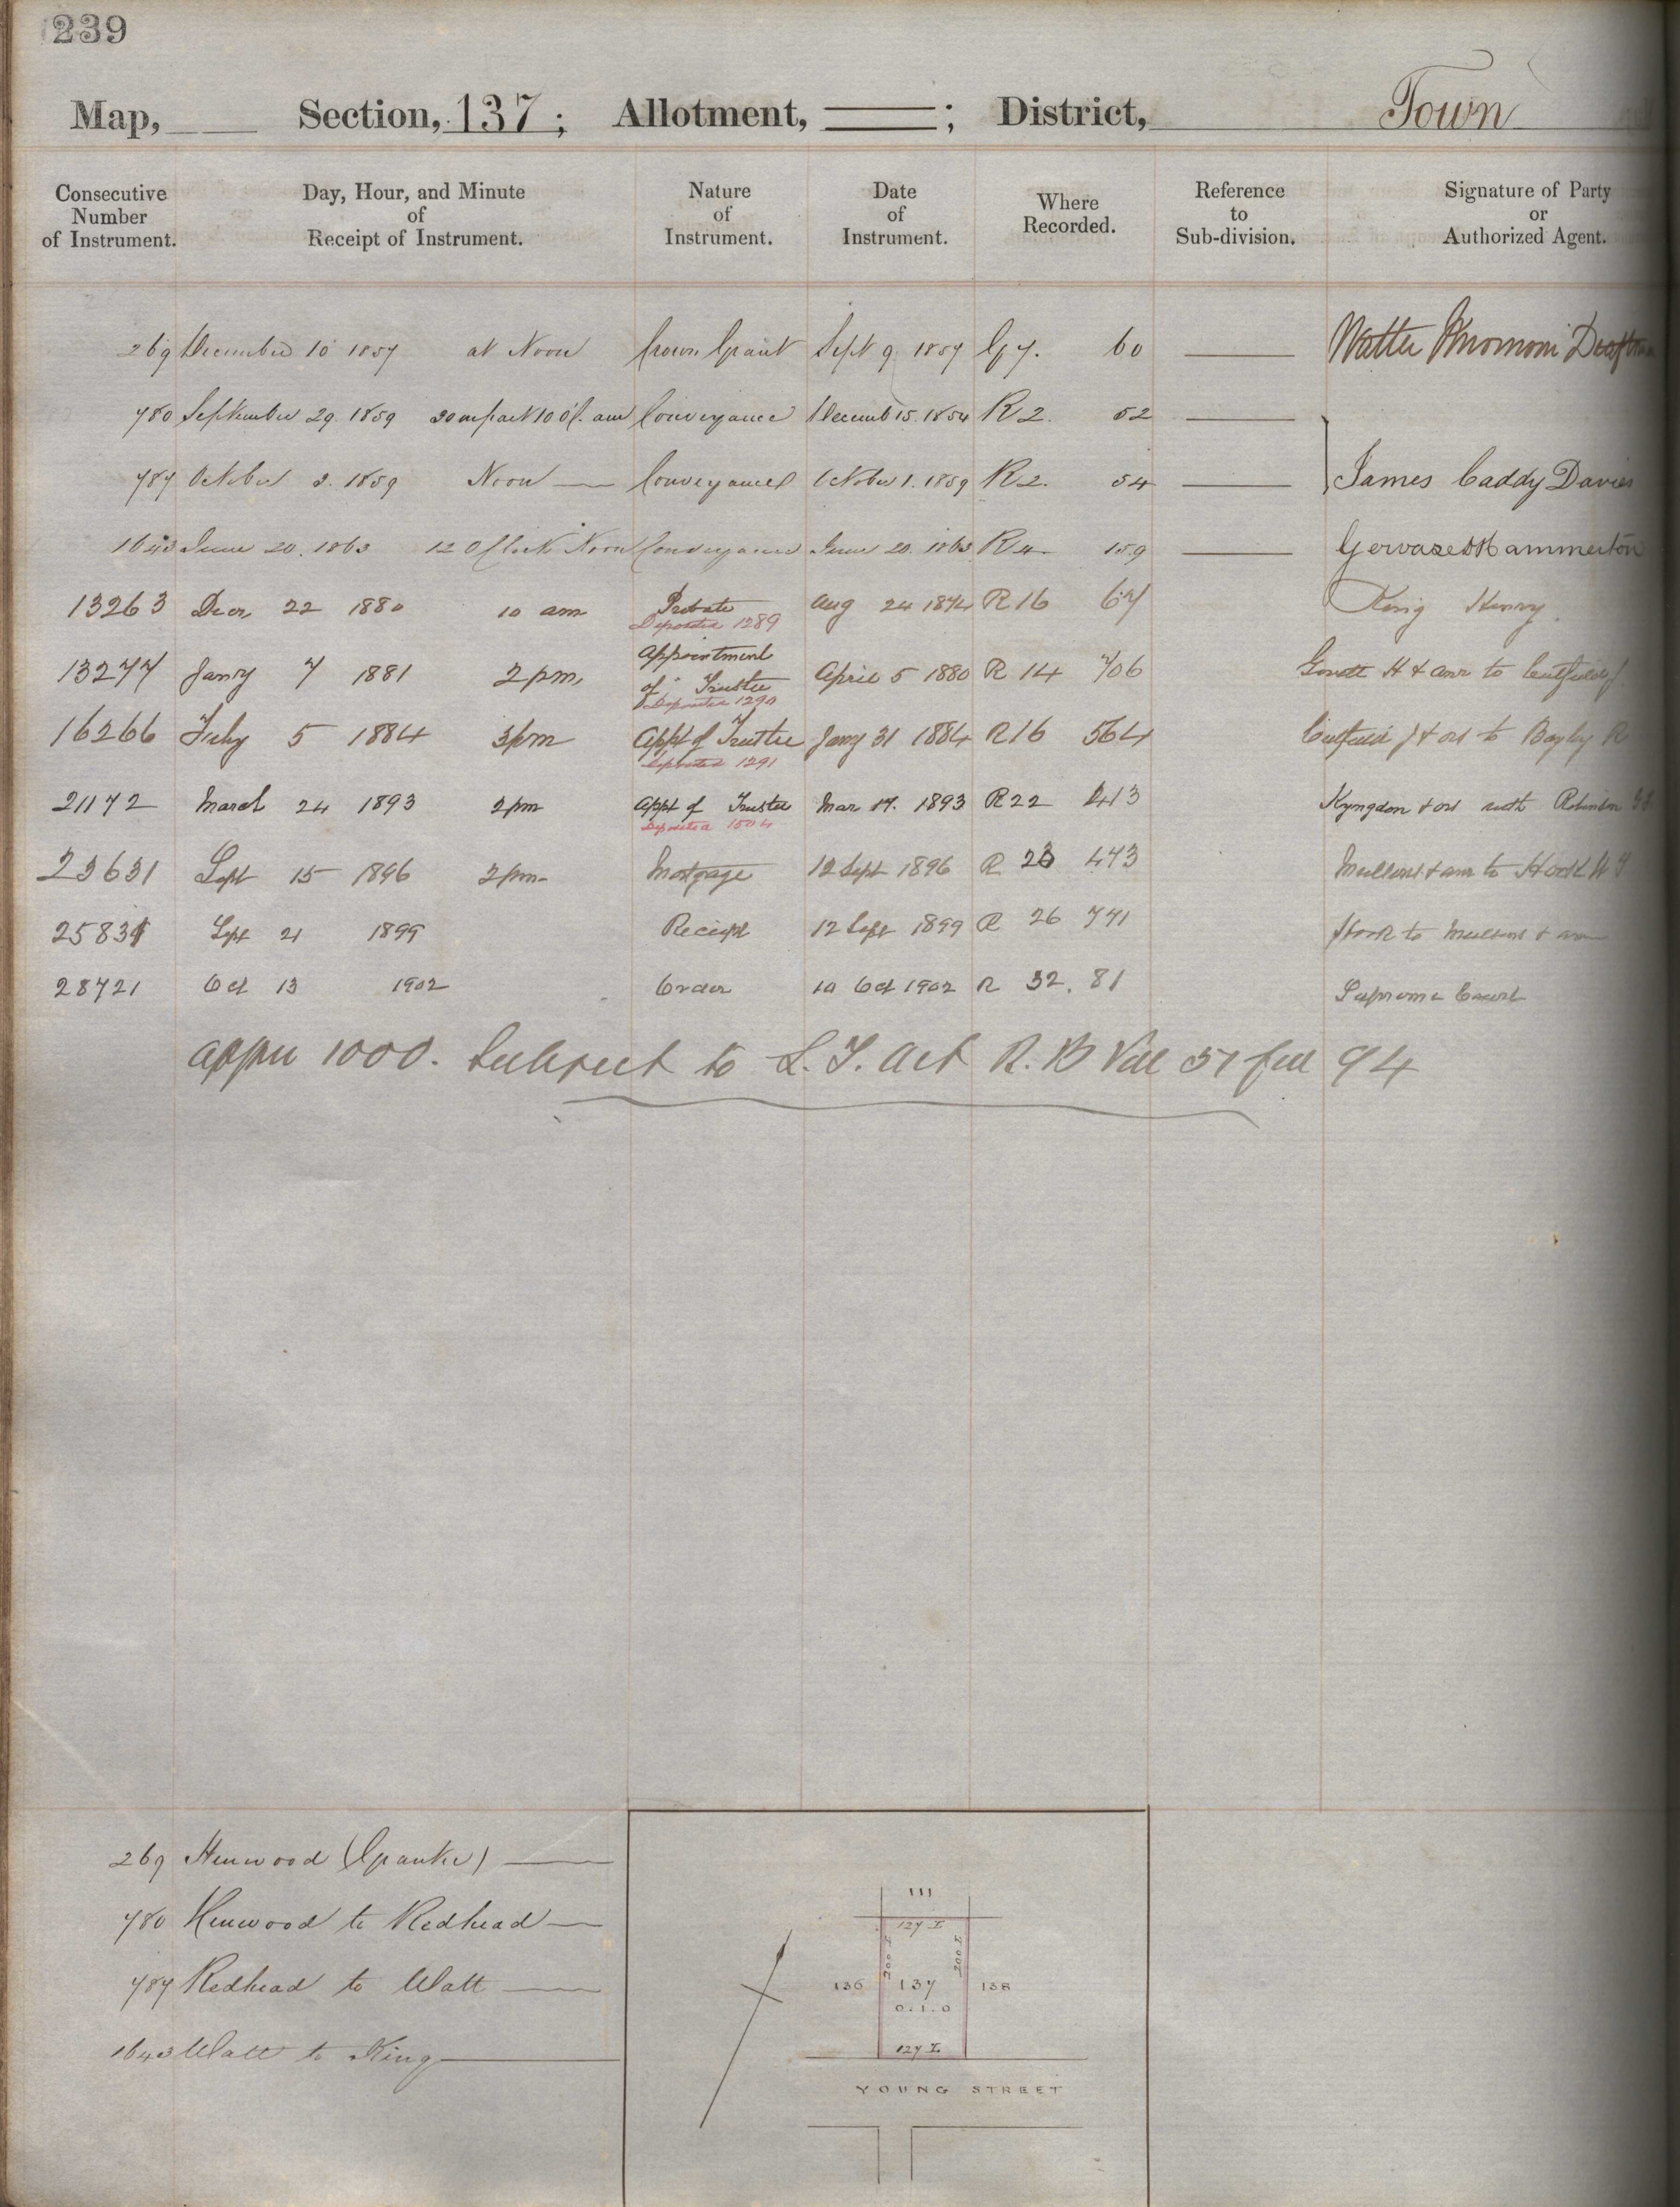 239
Map, Section, 137; Allotment, ; District, Town
Consecutive Number of Instrument. Day, Hour, and Minute of Receipt of Instrument. Nature of Instrument. Date of Instrument. Where Recorded. Reference to Sub-division. Signature of Party or Authorized Agent.
269 December 10 1857 at Noon Crown Grant Sept 9 1857 G 7. 60 Walter
780 September 29. 1859 am Conveyance Decemb 15. 1854 R 2. 52
787 October 3. 1859 Noon Conveyance October 1. 1859 R 2. 54 James Caddy Davies
1643 June 20. 1863 12 O'Clock Noon Conveyance June 20. 1863 R 4 159 Gervase D Hammerton
13263 Decr 22 1880 10 am Probate Aug 24 1874 R 16 67 King Henry
Deposited 1289
13277 Janry 7 1881 2 pm Appointment of Trustee April 5 1880 R 14 706 Govett H & anr to
Deposited 1290
16266 Feby 5 1884 3 pm Appt of Trustee Jany 31 1884 R 16 564 & ors to Bayly R
Deposited 1291
21172 March 24 1893 2 pm Appt of Trustee Mar 17. 1893 R 22 413 Kyngdon & ors with Robinson
Deposited 1504
23631 Sept 15 1896 2 pm Mortgage 12 Sept 1896 R 23 473 & anr to
25831 Sept 21 1899 Receipt 12 Sept 1899 R 26 771 to
28721 Oct 13 1902 Order 10 Oct 1902 R 32. 81 Supreme Court
appn 1000. Subject to L. T. Act R. B Vol 57 fol 94
269 Henwood (Grantee)
780 Henwood to Redhead
787 Redhead to Watt
1643 Watt to King
111
127 L
200 L 200 L
136 137 138
0. 1. 0
127 L
YOUNG STREET